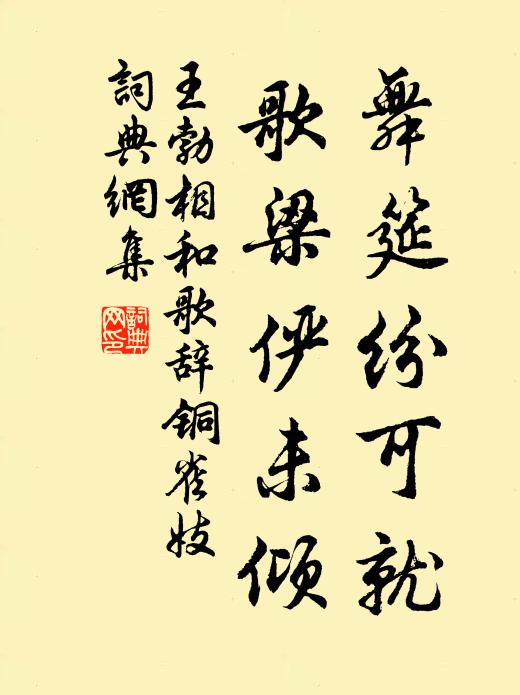 舞筵纷可就
歌梁俨未倾
王勃相和歌辞铜雀妓
詞典網集
詞典网印